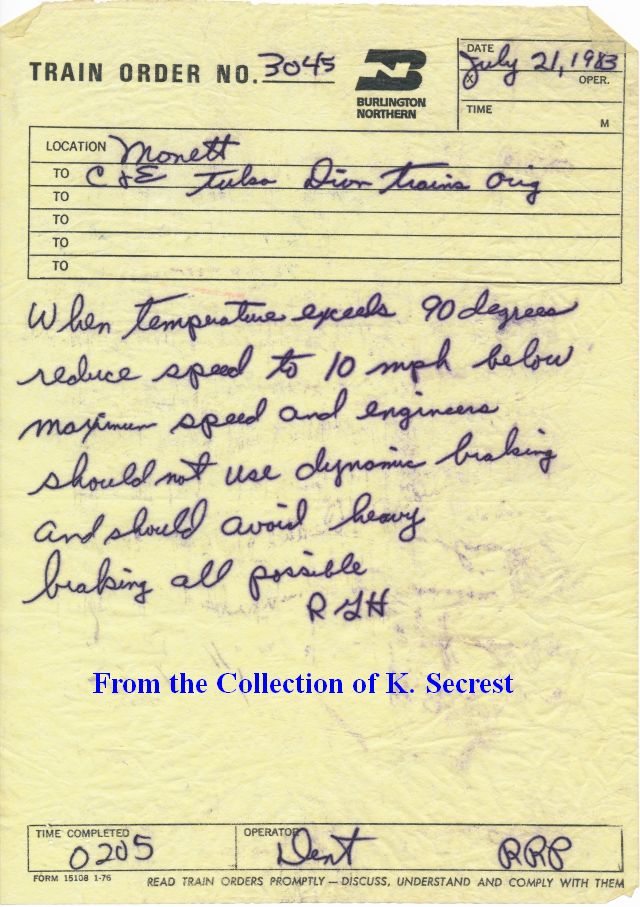 TRAIN ORDER NO. 3045
BURLINGTON
NORTHERN
DATE
July 21, 1983
X OPER.
TIME
M
LOCATION Monett
TO C & E Tulsa Divn trains Orig
TO
TO
TO
TO
When temperature exceeds 90 degrees
reduce speed to 10 mph below
maximum speed and engineers
should not use dynamic braking
and should avoid heavy
braking all possible
RGH
From the Collection of K. Secrest
TIME COMPLETED
0205
OPERATOR
Dent RRP
FORM 15108 1-76
READ TRAIN ORDERS PROMPTLY — DISCUSS, UNDERSTAND AND COMPLY WITH THEM